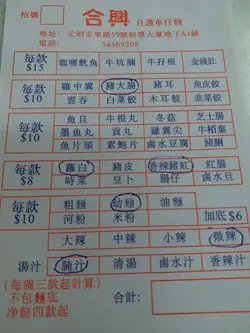 枱號 合興 自選車仔麵
地址: 元朗安寧路59號裕豐大廈地下A1鋪
電話: 54869208
每款 $15 咖喱魷魚 牛坑腩 牛孖根 金錢肚
每款 $10 雞中翼 豬大腸 豬耳 魚皮餃
雲吞 白菜餃 水餃 牛丸
每款 $10 魚旦 貢丸 冬菇 芝士腸
墨魚丸 墨魚 雞亦 牛栢葉
魚片頭 素鮑片 鹵水豆腐 豬腩
每款 $8 蘿白 豬皮 香辣豬紅 紅腸
時菜 豆卜 腸仔 鹵水旦
每款 $10 粗麵 幼麵 油麵
河粉 米粉 加底$6
大辣 中辣 小辣 微辣
湯汁 腩汁 清湯 鹵水汁 香辣汁
(每碗三款起計算)
不包麵底
净餸四款起
合計: